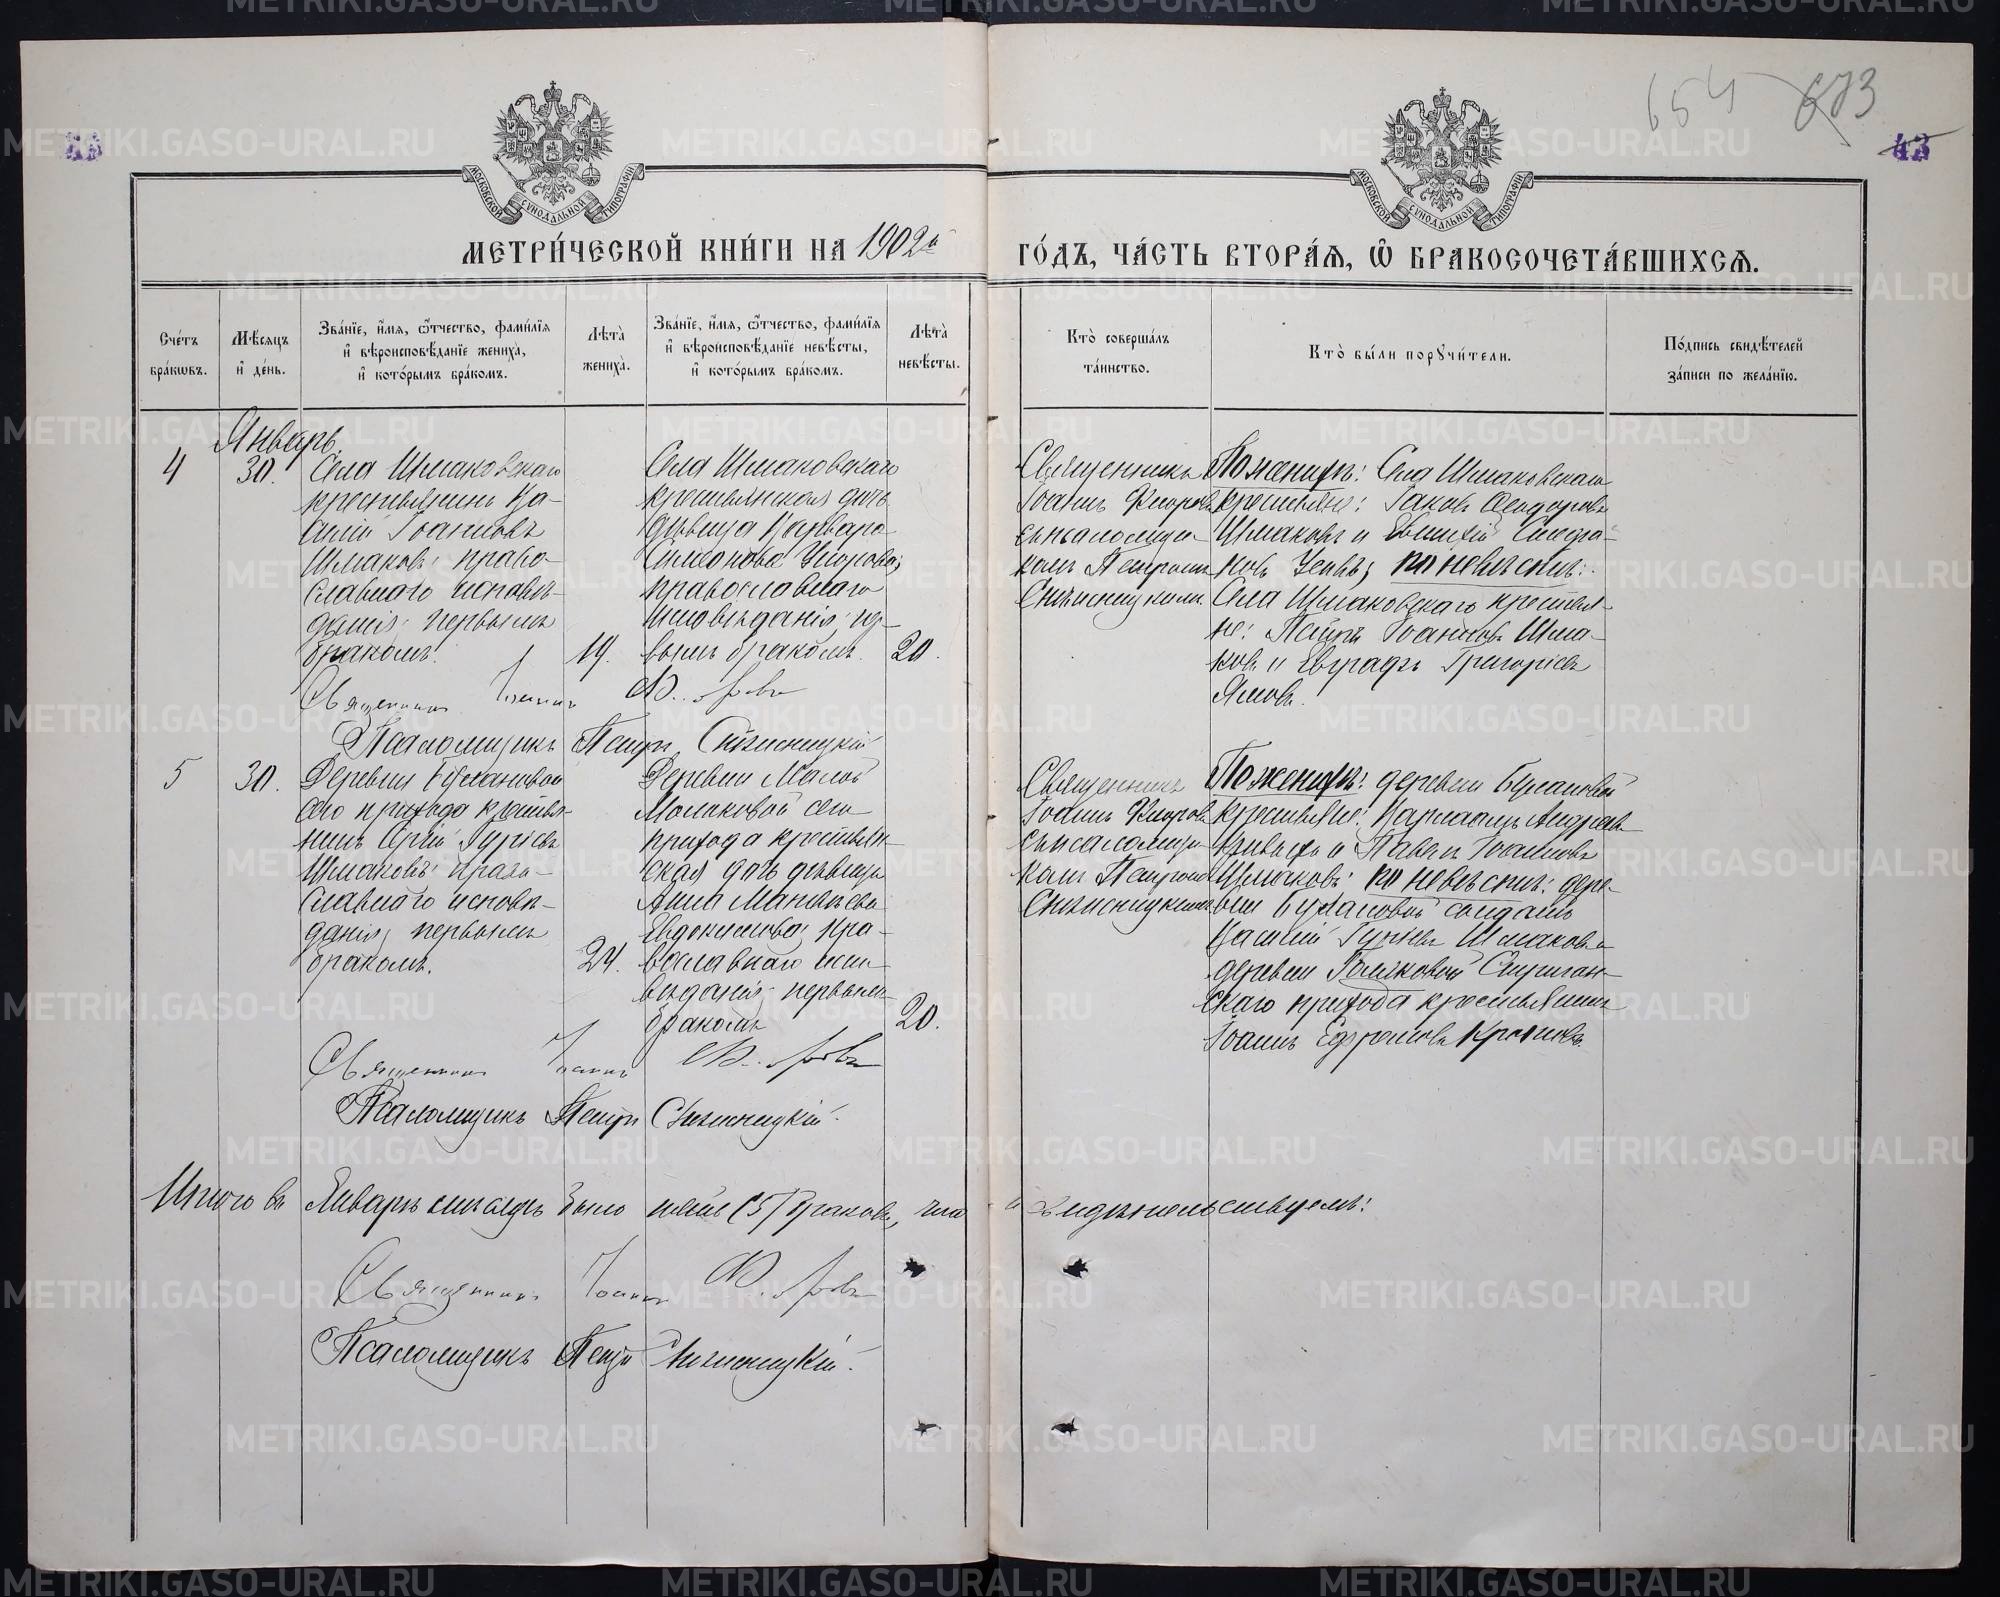 654 673
42
МОСКОВСКОЙ СѴНОДАЛЬНОЙ ТИПОГРАФІИ
МОСКОВСКОЙ СѴНОДАЛЬНОЙ ТИПОГРАФІИ
МЕТРИ́ЧЕСКОЙ КНИ́ГИ НА 1902й
ГО́ДЪ, ЧА́СТЬ ВТОРА́Ѧ, Ѽ БРАКОСОЧЕТА́ВШИХСѦ.
Сче́тъ бра́кωвъ.
Мѣ́сяцъ и҆ де́нь.
Зва́нїе, и҆́мѧ, ѻ҆́тчество, фами́лїѧ и҆ вѣроисповѣ́данїе жениха̀, и҆ кото́рымъ бра́комъ.
Лѣта̀ жениха̀.
Зва́нїе, и҆́мѧ, ѻ҆́тчество, фами́лїѧ и҆ вѣроисповѣ́данїе невѣ́сты, и҆ кото́рымъ бра́комъ.
Лѣта̀ невѣ́сты.
Кто̀ соверша́лъ та́инство.
Кто̀ бы́ли порꙋчи́тели.
По́дпись свидѣ́телей за́писи по жела́нїю.
Январь.
4
30.
Села Шмаковскаго
крестьянинъ Ва-
силій Іоанновъ
Шмаковъ; право-
славнаго исповѣ-
данія; первымъ
бракомъ.
19.
Села Шмаковскаго
крестьянская дочь
дѣвица Варвара
Симонова
православнаго
исповѣданія; пер-
вымъ бракомъ.
20.
Священникъ
Іоаннъ Флоровъ
съ псаломщи-
комъ Петромъ
По женихѣ: Села Шмаковскаго
крестьяне: Іаковъ Ѳеодоровъ
Шмаковъ и Евгеній
по невѣстѣ:
Села Шмаковскаго крестья-
не: Іоанновъ Шма-
ковъ и Евграфъ Григоріевъ
Священникъ Іоаннъ Флоровъ
Псаломщикъ Петръ
5
30.
Деревни Булановой
сего прихода крестья-
нинъ Сергій Гуріевъ
Шмаковъ; право-
славнаго исповѣ-
данія; первымъ
бракомъ.
24.
Деревни Малой
сего
прихода крестьян-
ская дочь дѣвица
Анна
Евдокимова; пра-
вославнаго испо-
вѣданія; первымъ
бракомъ
20.
Священникъ
Іоаннъ Флоровъ
съ псаломщи-
комъ Петромъ
По женихѣ: деревни Булановой
крестьяне: Андреевъ
и Павелъ Іоанновъ
Шмаковъ; по невѣстѣ: дере-
вни Булановой солдатъ
Василій Гуріевъ Шмаковъ и
деревни
скаго прихода крестьянинъ
Іоаннъ Ефремовъ
Священникъ Іоаннъ Флоровъ
Псаломщикъ Петръ
Итого въ Январѣ мѣсяцѣ было пять (5) браковъ, что и свидѣтельствуемъ:
Священникъ Іоаннъ Флоровъ
Псаломщикъ Петръ
METRIKI.GASO-URAL.RU